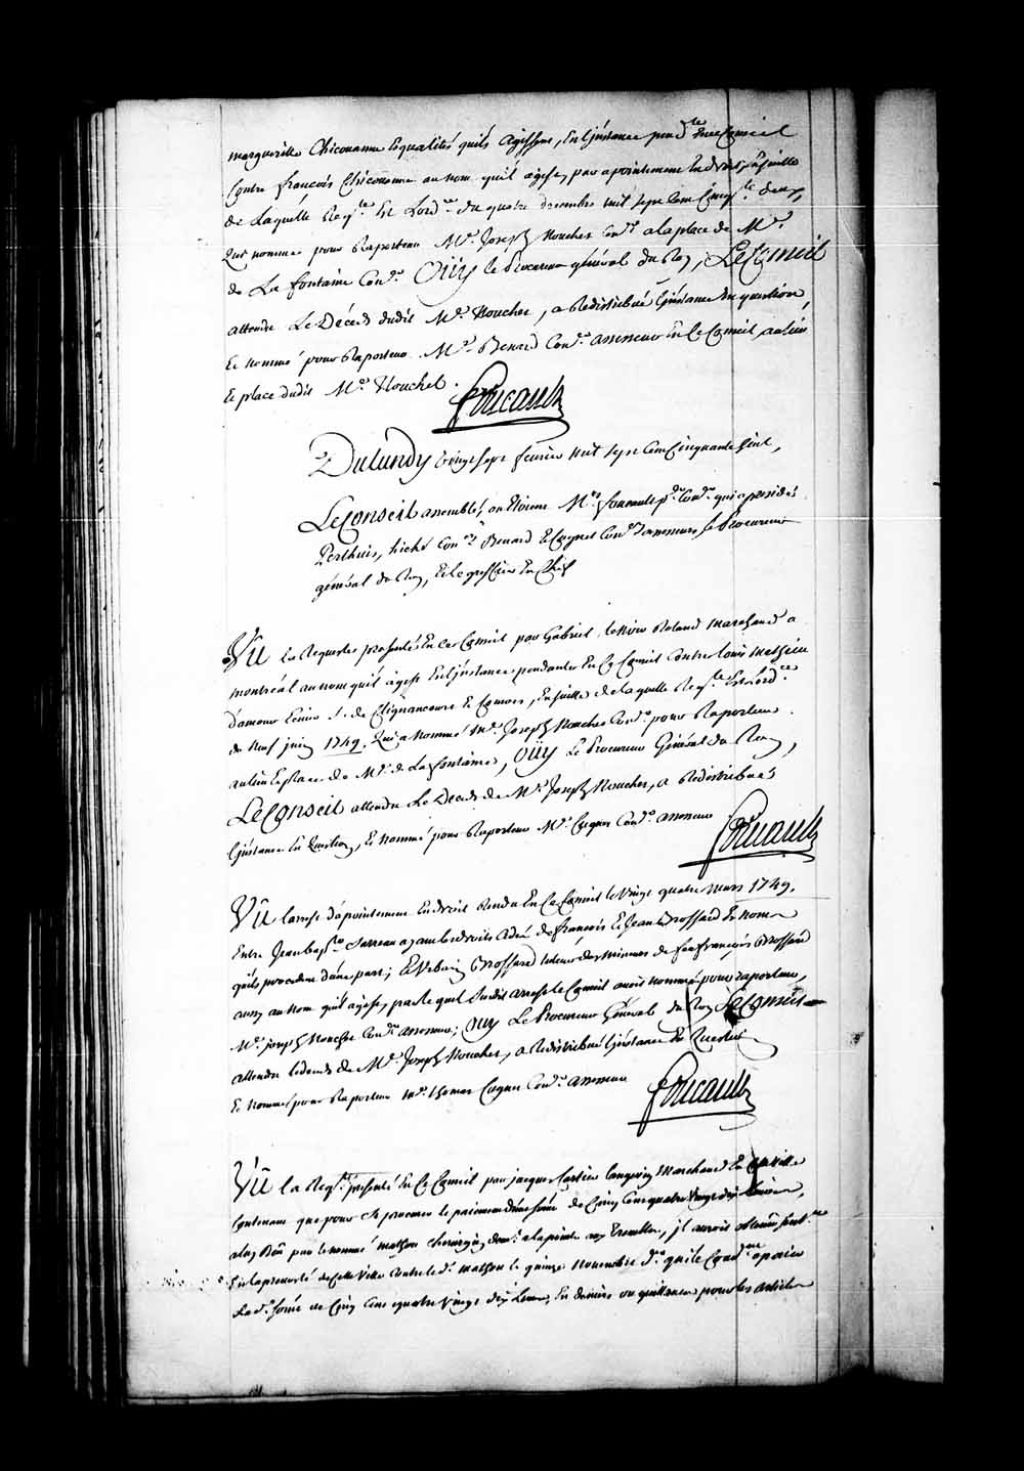 marguerite Chicouanne Esqualités quils agissent, En Linstance pend.te En ce Conseil
Contre françois Chicouanne au nom quil agist, par apointement En droit, Ensuitte
de Laquelle Req.te Est Lord.ce du quatre decembre mil sept Cent Cinq.te deux,
Qui nomme pour Raporteur M.e Joseph Nouchet Con.er a la place de M.e
de La fontaine Con.er Oüy le Procureur général du Roy, Le Conseil
attendu Le Décéds dudit M.e Nouchet, a Redistribué Linstance En question,
Et nommé pour Raporteur M.e Benard Con.er assesseur En Ce Conseil, au lieu
Et place dudit M.e Nouchet.
Foucault
Du Lundy vingt sept feurier mil sept Cent Cinquante huit,
Le Conseil assemblé, ou Etoient M.rs foucault p.er Con.er qui a presidé
Perthuis, hiché Con.ers Benard Et Cugnet Con.ers assesseurs le Procureur
général du Roy, Et le greffier En Chef
Vû La Requeste presentée En ce Conseil par Gabriel Roland marchand a
montréal au nom quil agist En Linstance pendante En Ce Conseil Contre Louis mathieu
damour Ecuier S. de Clignancourt Et Consors, Ensuitte de laquelle Req.te Est Lord.ce
du Neuf juin 1749. Qui a Nommé M.e Joseph Nouchet Con.er pour Raporteur
au lieu Et place de M.e de La fontaine, Oüy Le Procureur Général du Roy,
Le Conseil attendu Le Déceds de M.e Joseph Nouchet, a Redistribué
Linstance En Question, Et nommé pour Raporteur M.e Cugnet Con.er assesseur
Foucault
Vû Larrest dapointement En droit Rendu En Ce Conseil le Vingt quatre mars 1749.
Entre Jean bap.te Sarreau ayant les droits Cedés de françois Et Jean Brossard Es noms
quils procedent dune part; Et Urbain Brossard tuteur des mineurs de feu françois Brossard
aussy au nom quil agist, par le quel Susdit arrest le Conseil auroit nommé pour raporteur,
M.e joseph Nouchet Con.er assesseur; Oüy Le Procureur Général du Roy Le Conseil
attendu le deceds de M.e Joseph Nouchet, a Redistribué Linstance En Question
Et nommé pour Raporteur M.e thomas Cugnet Con.er assesseur
Foucault
Vû La Req.te presenté En Ce Conseil par jacques Cartier Langevin Marchand En Cette Ville
Contenant que pour Se procurer le paiement dune Somme de Cinq Cent quatre vingt dix Livres
a luy Dûe par le nommé mathon Chirurgien dem.t a la pointe aux Trembles, jl auroit obtenû Sent.ce
En la prevosté de Cette Ville Contre led. mathon le quinze Novembre d.er qui le Cond.ne a paier
La d. Somme de Cinq Cent quatre Vingt dix Livres, En deniers ou quittances pour les articles